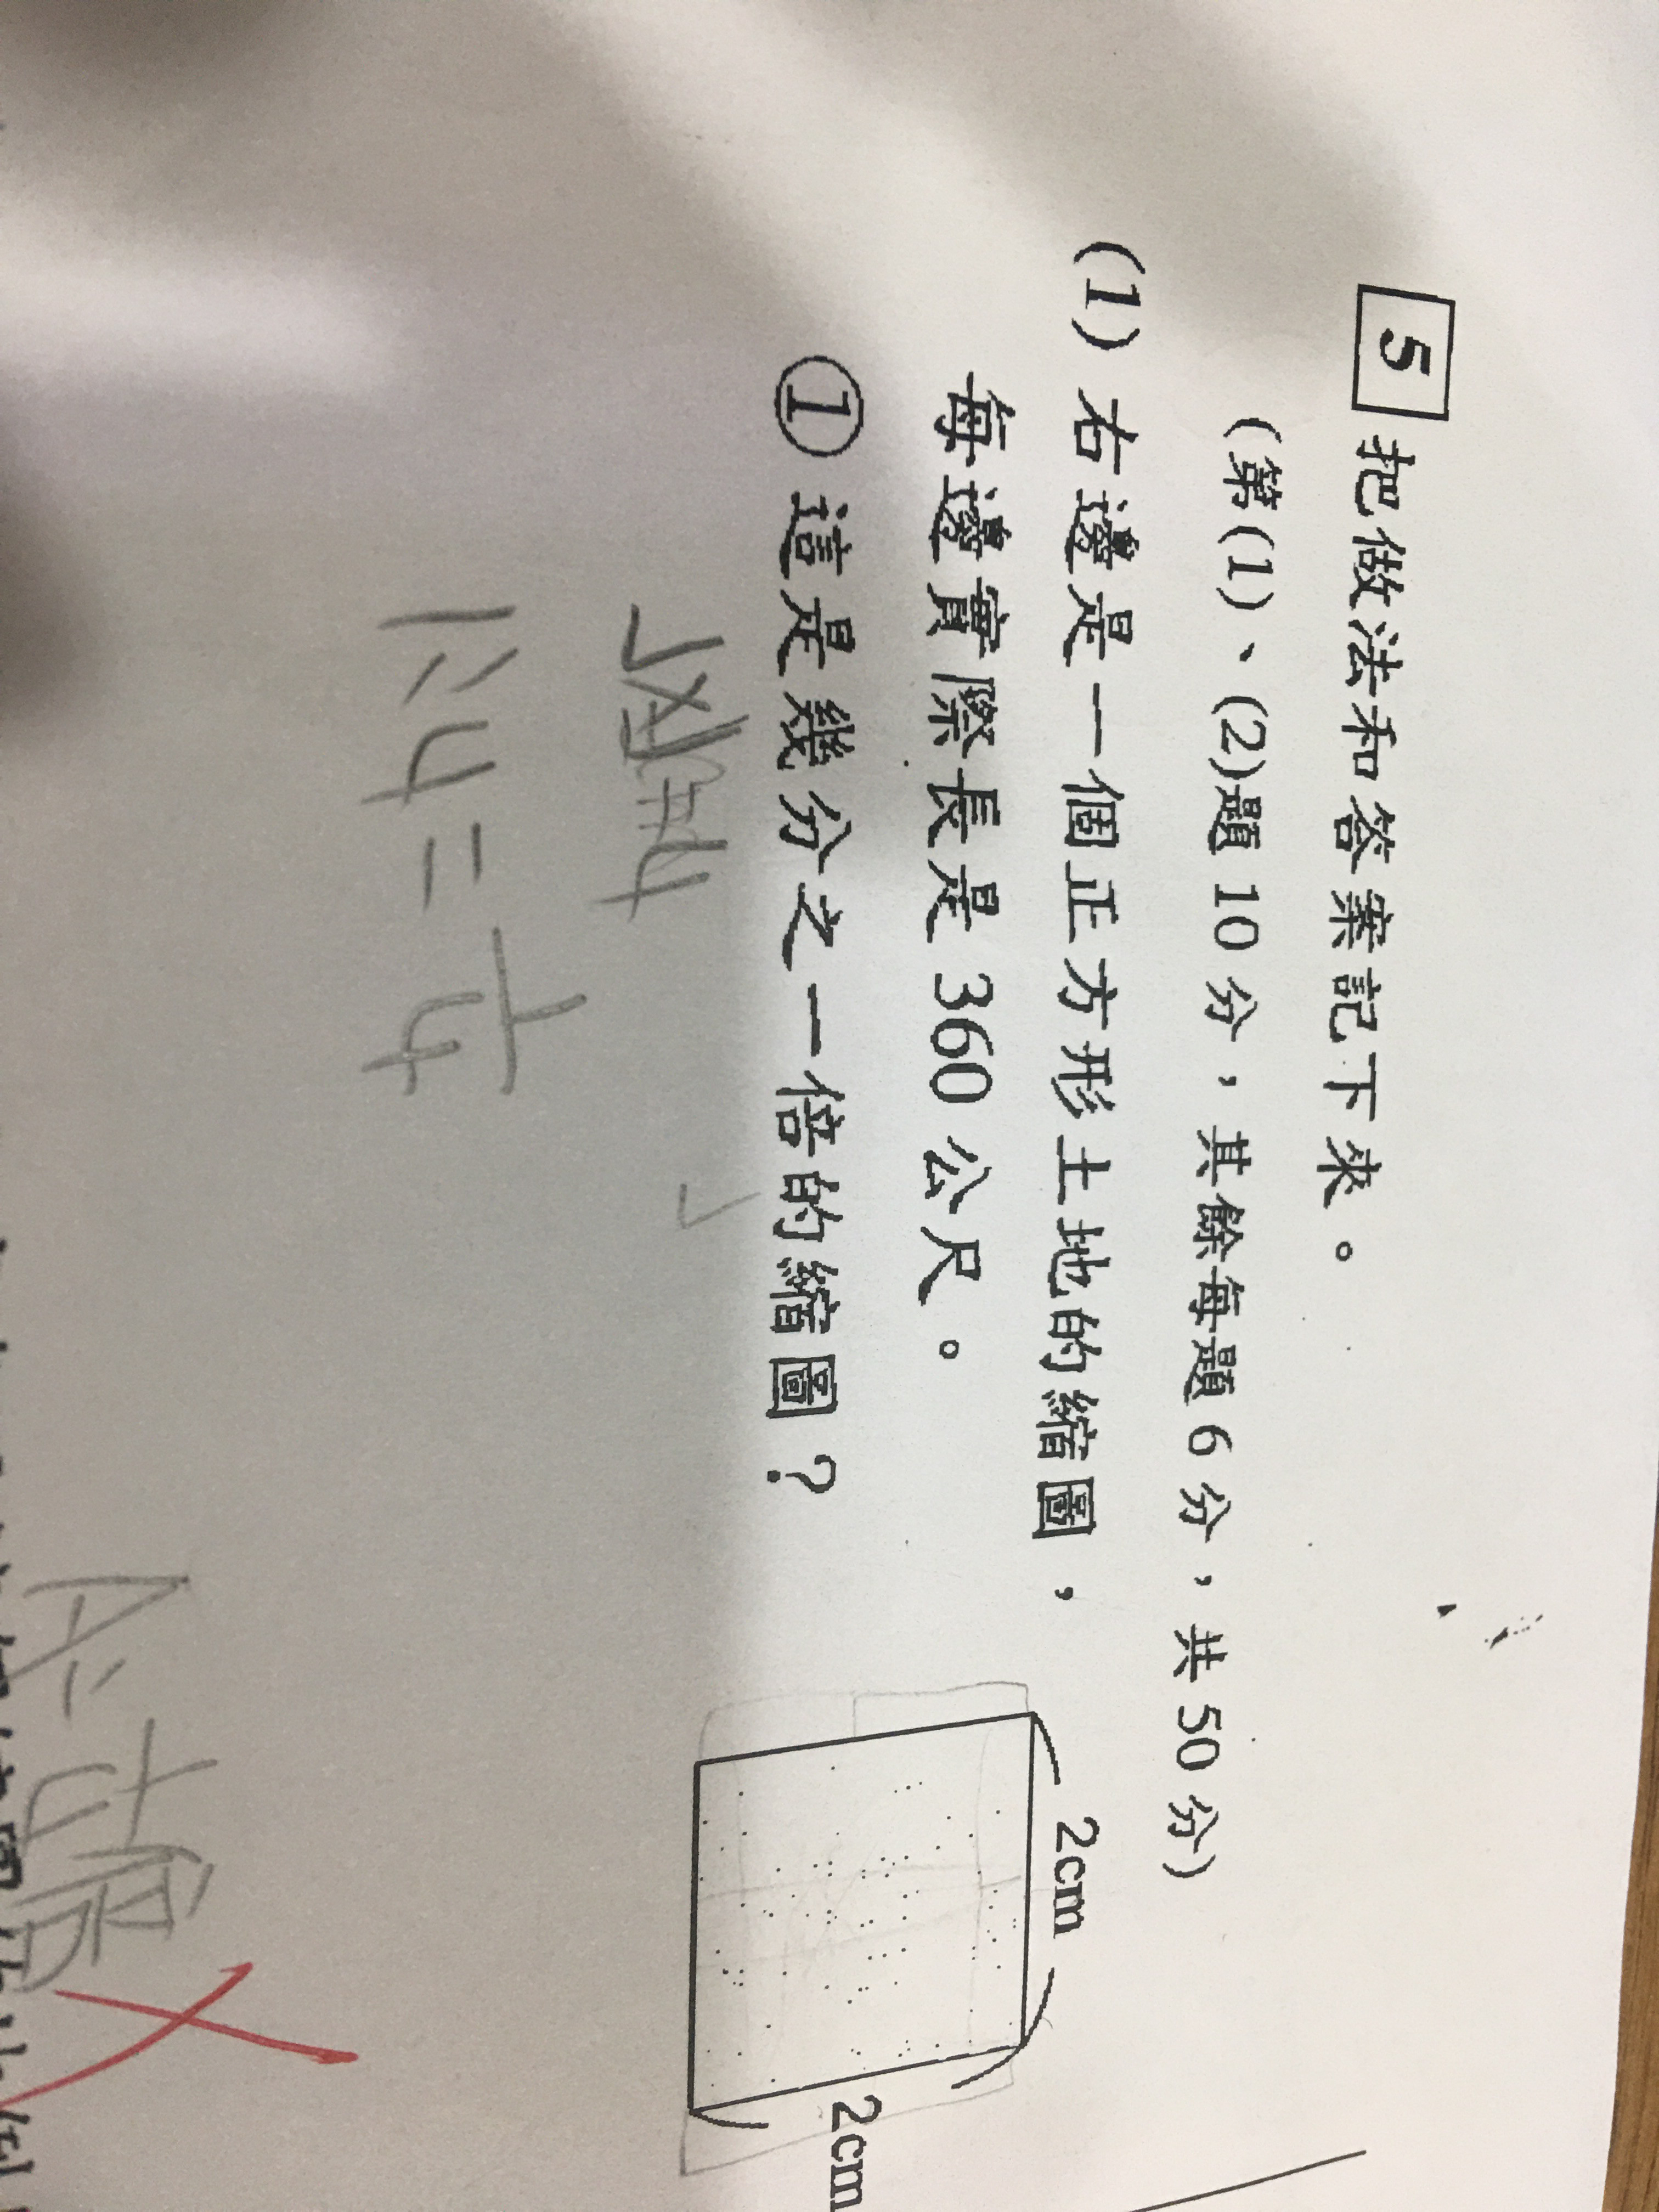 5 把做法和答案記下來。
(第(1)、(2)題10分，其餘每題6分，共50分)
(1) 右邊是一個正方形土地的縮圖，
每邊實際長是360公尺。
2cm
2cm
① 這是幾分之一倍的縮圖？
1÷4=1/4
A: 1/4倍